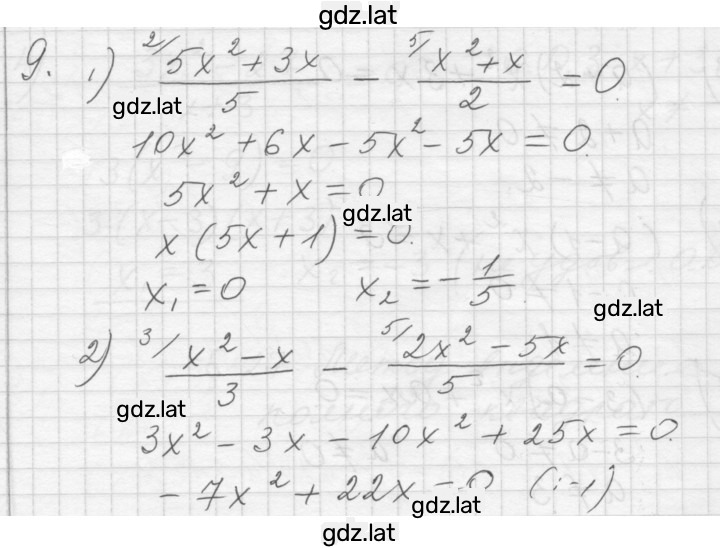 gdz.lat
9. 1) ²/ (5x² + 3x)/5 − ⁵/ (x² + x)/2 = 0.
gdz.lat
10x² + 6x − 5x² − 5x = 0.
5x² + x = 0
gdz.lat
x(5x + 1) = 0.
x₁ = 0 x₂ = −1/5.
gdz.lat
2) ³/ (x² − x)/3 − ⁵/ (2x² − 5x)/5 = 0.
gdz.lat
3x² − 3x − 10x² + 25x = 0.
−7x² + 22x = 0 (:−1)
gdz.lat
gdz.lat